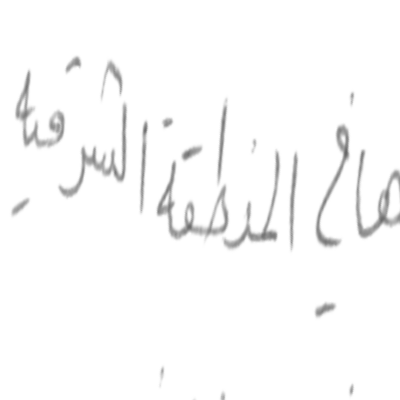 هافي المنطقة الشرقية